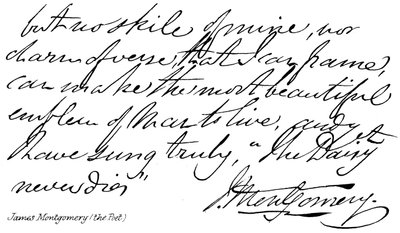 but no skill of mine, nor
charm of verse, that I can frame,
can make the most beautiful
emblem of        live, and yet
I have sung truly, "The Daisy
never dies"
J. Montgomery.
James Montgomery (the Poet)